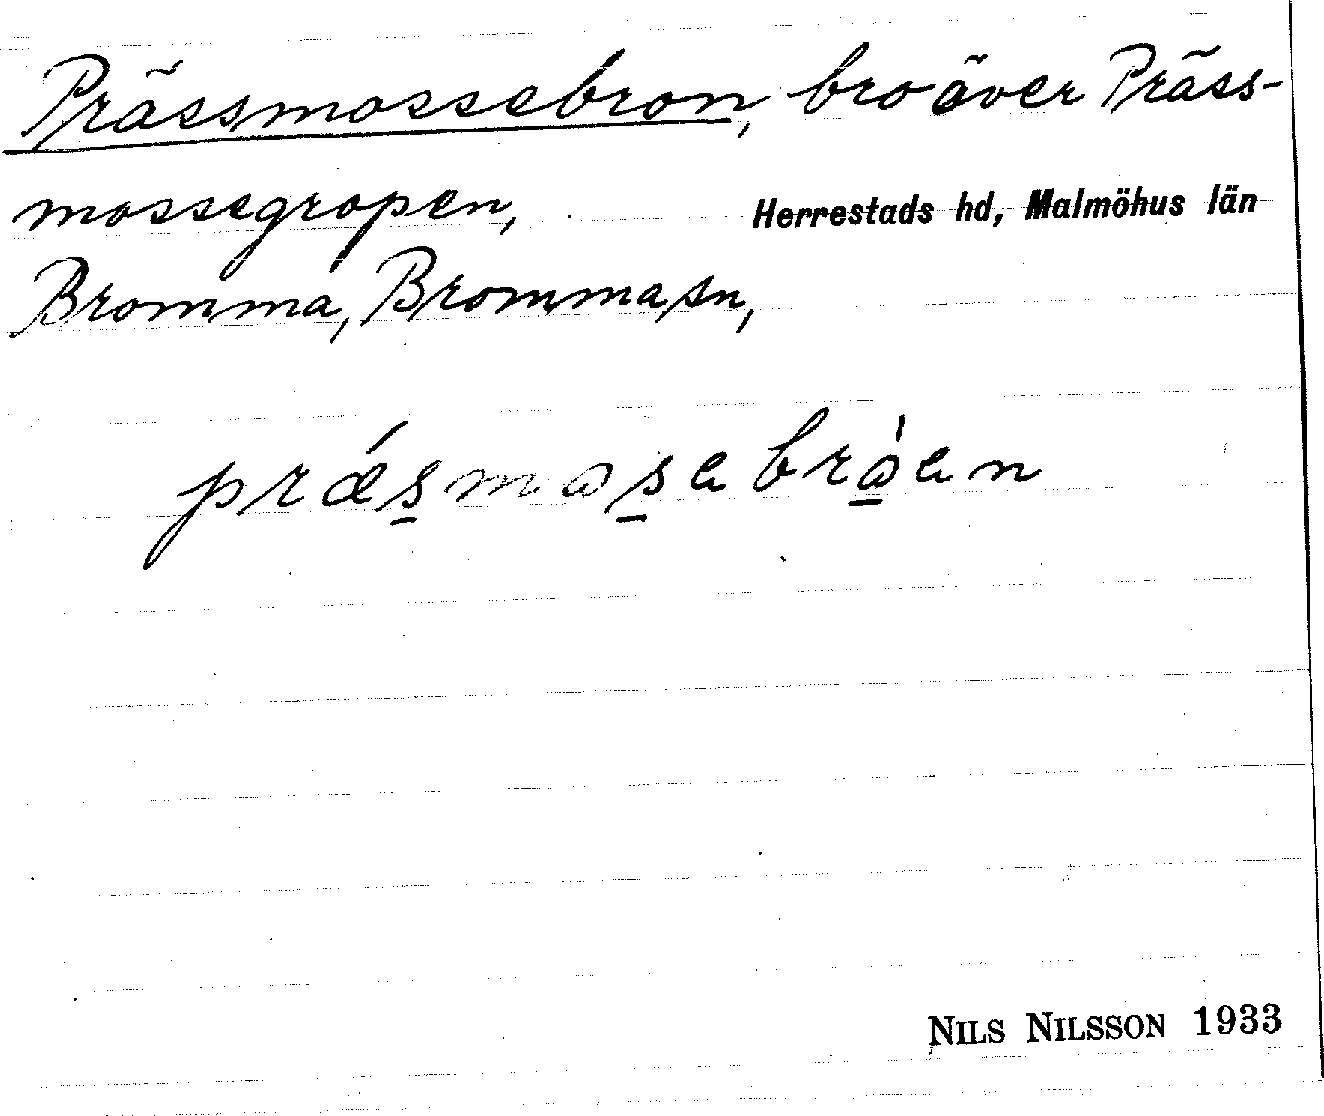 Prässmossebron, bro över Präss-
mossegropen, Herrestads hd, Malmöhus län
Bromma, Bromma sn,
prǽs̲mas̲ebrà̲en
NILS NILSSON 1933